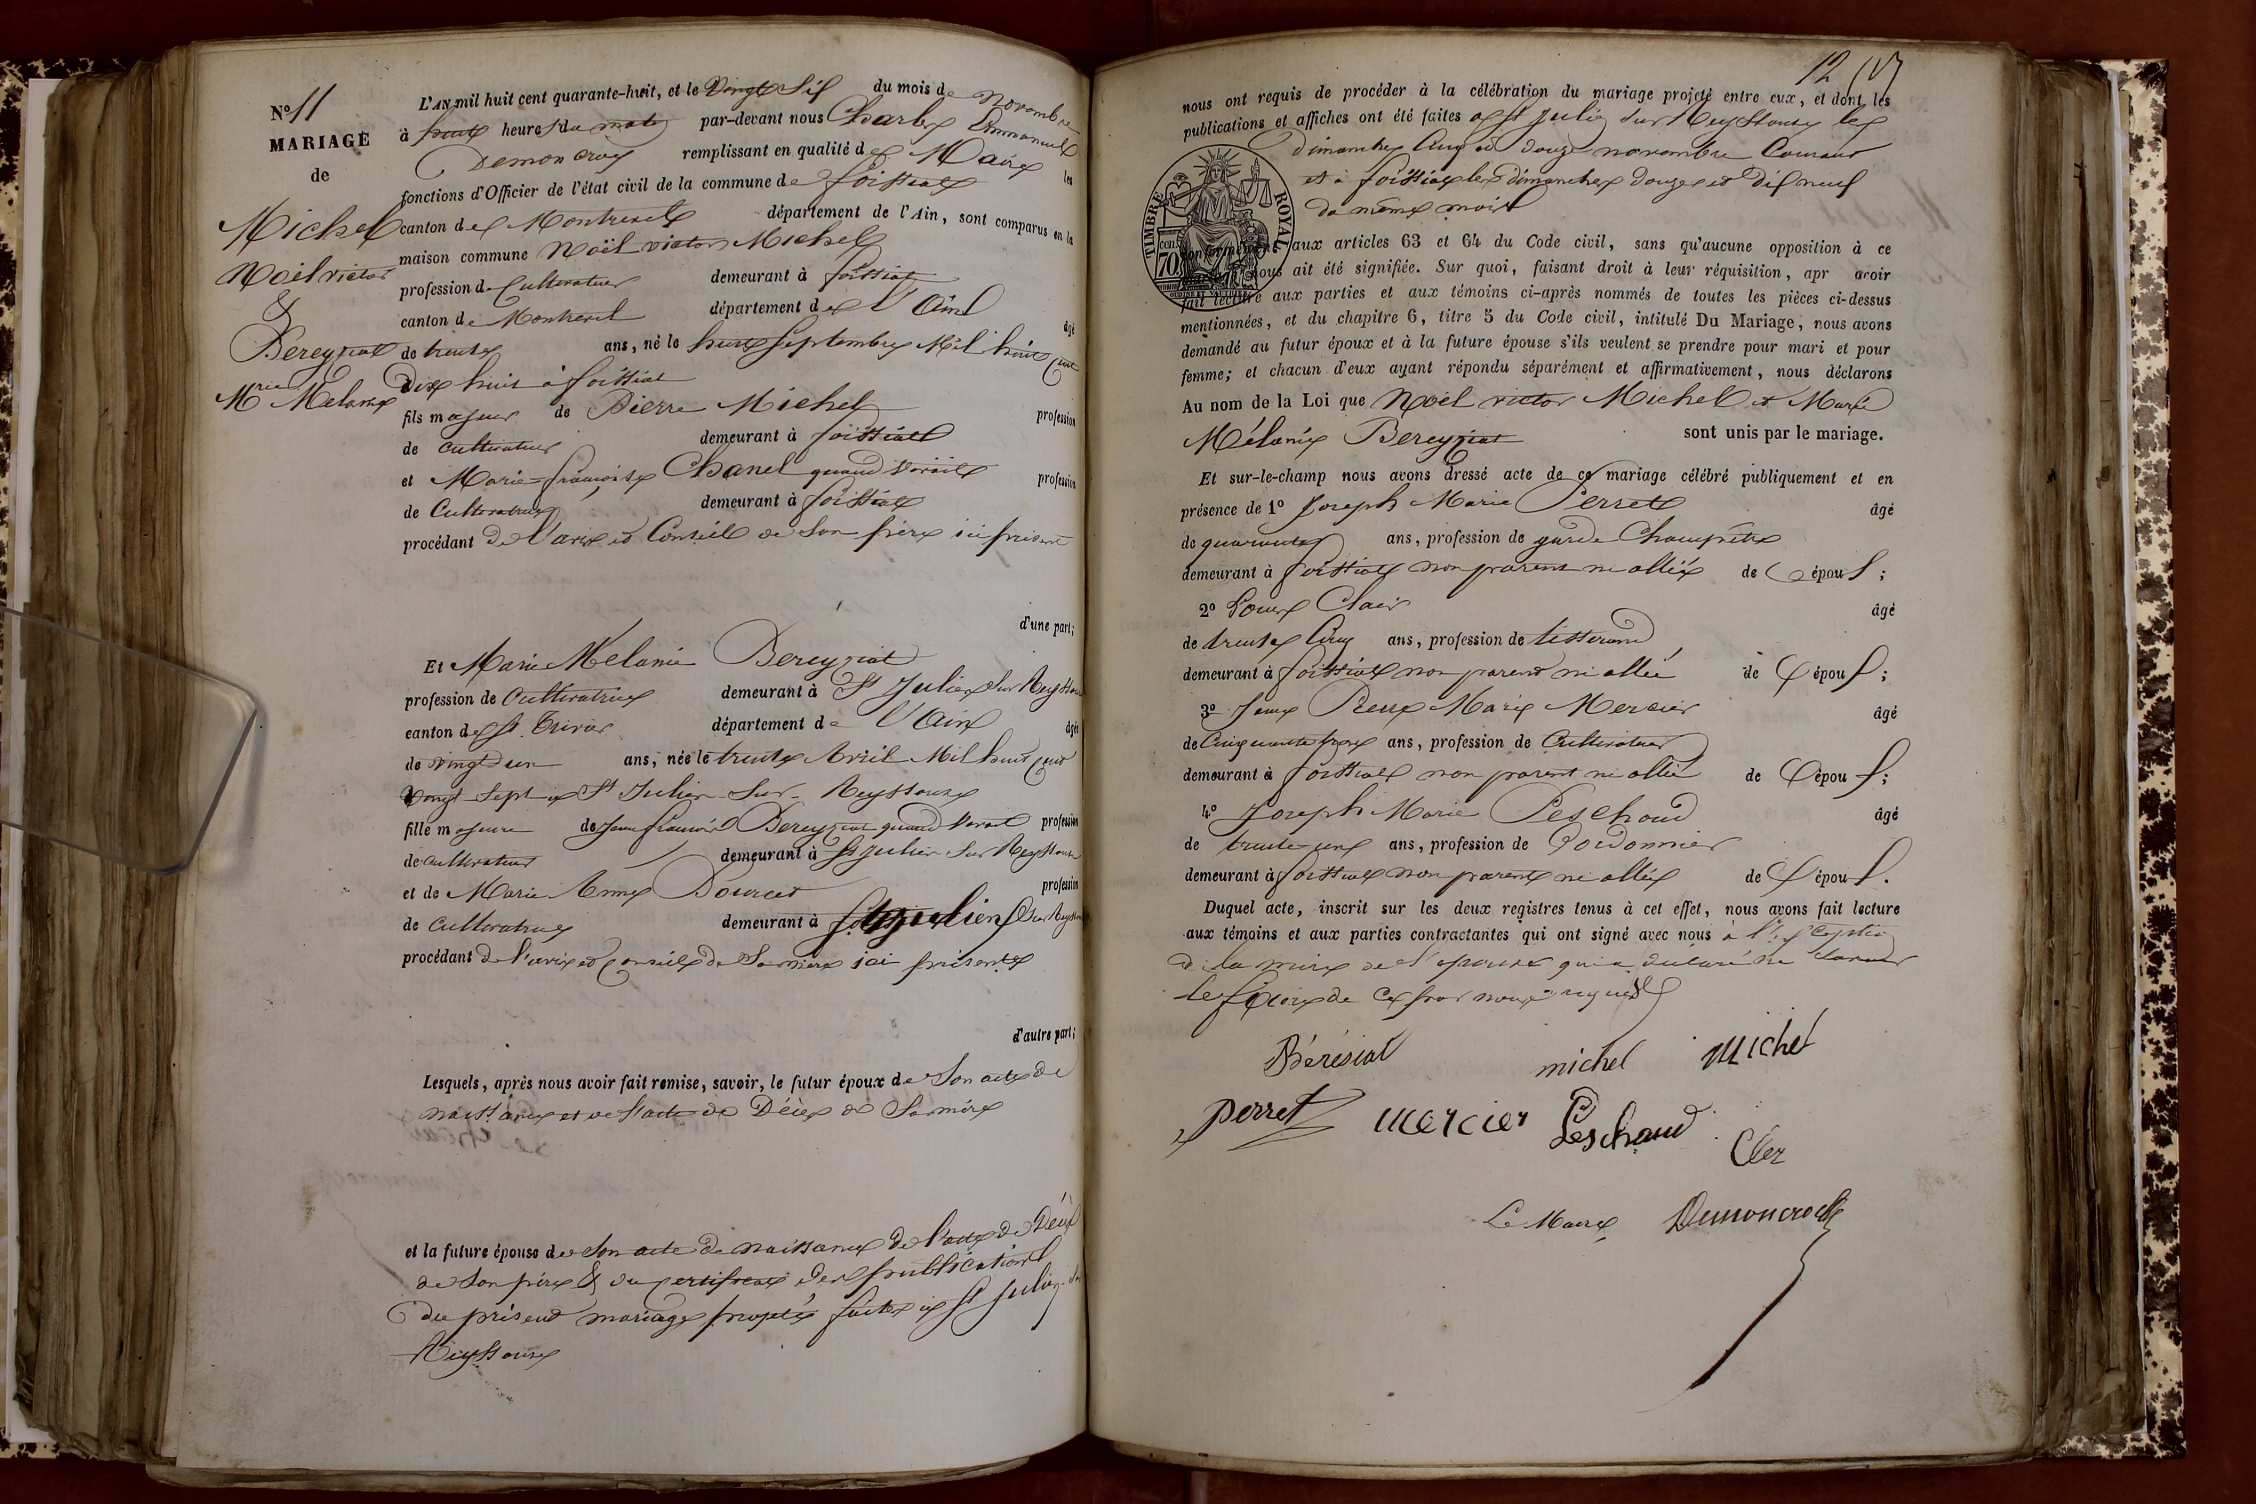 N° 11
MARIAGE
de
Michel
Noël victor
&
Bereyziat
Mrie Melanie
L'AN mil huit cent quarante-huit, et le Vingt Six du mois de Novembre
à huit heures du matin par-devant nous Charles Emmanuel
Demoncroy remplissant en qualité de Maire les
fonctions d'Officier de l'état civil de la commune de foissiat
canton de Montrevel département de l'Ain, sont comparus en la
maison commune Noël victor Michel
profession de Cultivateur demeurant à foissiat
canton de Montrevel département de l'Ain âgé
de trente ans, né le huit Septembre Mil huit cent
Dix huit à foissiat
fils majeur de Pierre Michel profession
de cultivateur demeurant à foissiat
et Marie-françoise Chanel quand vivait profession
de Cultivatrice demeurant à foissiat
procédant de l'avis et Conseil de Son père ici présent
d'une part;
Et Marie Melanie Bereyziat
profession de Cultivatrice demeurant à St Julien Sur Reyssouze
canton de St Trivier département de l'Ain âgée
de vingt un ans, née le trente Avril Mil huit cent
vingt Sept à St Julien Sur Reyssouze
fille majeure de Jean françois Bereyziat quand vivait profession
de cultivateur demeurant à St Julien Sur Reyssouze
et de Marie Anne Bourcet profession
de cultivatrice demeurant à St julien Sur Reyssouze
procédant de l'avis et Conseil de Sa mère ici présente
d'autre part;
Lesquels, après nous avoir fait remise, savoir, le futur époux de Son acte de
naissance et de l'acte de Décès de Sa mère
et la future épouse de Son acte de naissance de l'acte de Décès
de Son père & du Certificat des publications
du présent mariage projeté faites à St Julien Sur
Reyssouze
12
nous ont requis de procéder à la célébration du mariage projeté entre eux, et dont les
publications et affiches ont été faites à St Julien Sur Reyssouze les
dimanches Cinq et douze novembre Courant
et à foissiat les dimanches douze et dix neuf
du même mois
TIMBRE ROYAL
70
conformément aux articles 63 et 64 du Code civil, sans qu'aucune opposition à ce
mariage nous ait été signifiée. Sur quoi, faisant droit à leur réquisition, apr avoir
fait lecture aux parties et aux témoins ci-après nommés de toutes les pièces ci-dessus
mentionnées, et du chapitre 6, titre 5 du Code civil, intitulé Du Mariage, nous avons
demandé au futur époux et à la future épouse s'ils veulent se prendre pour mari et pour
femme; et chacun d'eux ayant répondu séparément et affirmativement, nous déclarons
Au nom de la Loi que Noël victor Michel et Marie
Mélanie Bereyziat sont unis par le mariage.
Et sur-le-champ nous avons dressé acte de ce mariage célébré publiquement et en
présence de 1° Joseph Marie Perret âgé
de quarante ans, profession de garde Champêtre
demeurant à foissiat non parent ni allié de l'époux;
2° Louis Clair âgé
de trente Cinq ans, profession de tisserand
demeurant à foissiat non parent ni allié de l'époux;
3° Jean Pierre Marie Mercier âgé
de Cinquante trois ans, profession de Cultivateur
demeurant à foissiat non parent ni allié de l'époux;
4° Joseph Marie Peschoud âgé
de trente un ans, profession de Cordonnier
demeurant à foissiat non parent ni allié de l'époux.
Duquel acte, inscrit sur les deux registres tenus à cet effet, nous avons fait lecture
aux témoins et aux parties contractantes qui ont signé avec nous à l'exception
de la mère de l'épouse qui a déclaré ne Savoir
le faire de ce par nous requise
Bérésiat michel michel
perret mercier Peschaud Cler
Le Maire Demoncroy